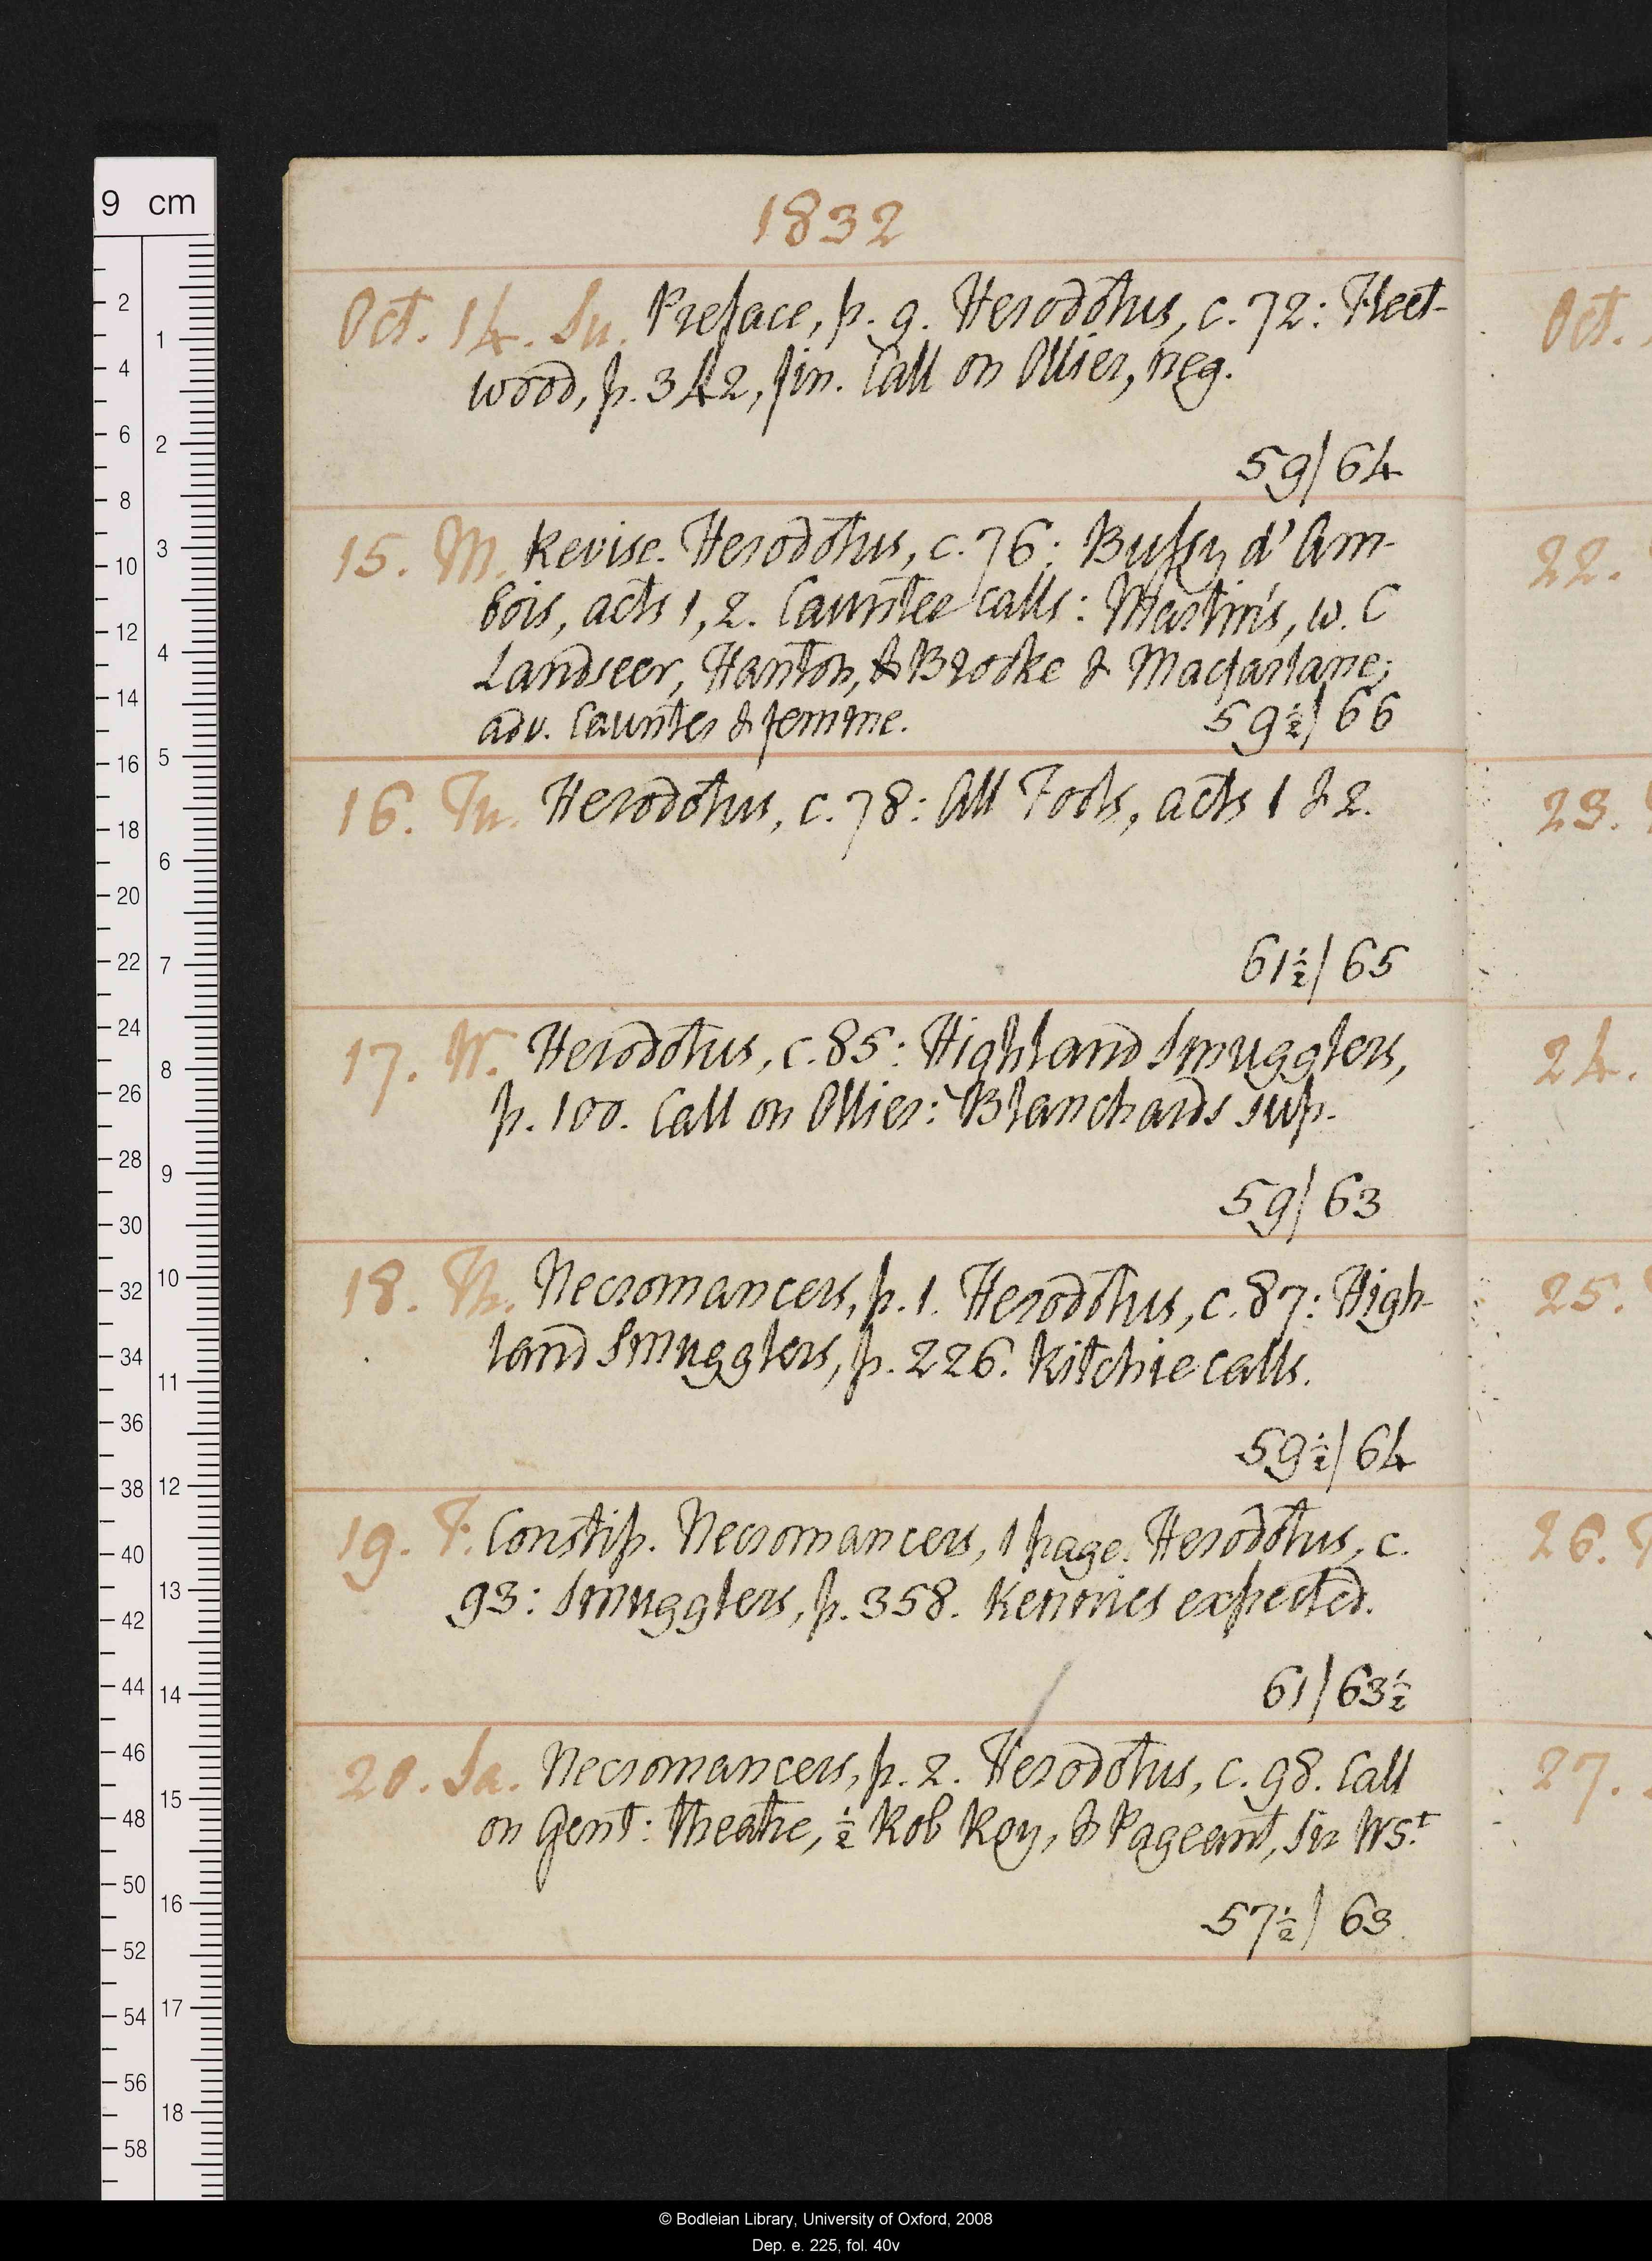 1832
Oct. 14. Su. Preface, p. 9. Herodotus, c. 72: Fleet-
wood, p. 342, fin. Call on Ollier, neg.
59/64
15. M. Revise. Herodotus, c. 76: Bussy d'Am-
bois, acts 1, 2. Caunter calls: Martin's, w. C
Landseer, Hanton, & Brooke & Macfarlane;
adv. Caunter & femme. 59½/66
16. Tu. Herodotus, c. 78: All Fools, acts 1 & 2.
61½/65
17. W. Herodotus, c. 85: Highland Smugglers,
p. 100. Call on Ollier: Blanchards sup.
59/63
18. Th. Necromancers, p. 1. Herodotus, c. 87: High-
land Smugglers, p. 226. Ritchie calls.
59½/64
19. F. Constip. Necromancers, 1 page. Herodotus, c.
93: Smugglers, p. 358. Kennies expected.
61/63½
20. Sa. Necromancers, p. 2. Herodotus, c. 98. Call
on Gent: theatre, ½ Rob Roy, & Pageant, Sir WS.t
57½/63
Oct.
22.
23.
24.
25.
26.
27.
9 cm
2
4
6
8
10
12
14
16
18
20
22
24
26
28
30
32
34
36
38
40
42
44
46
48
50
52
54
56
58
1
2
3
4
5
6
7
8
9
10
11
12
13
14
15
16
17
18
© Bodleian Library, University of Oxford, 2008
Dep. e. 225, fol. 40v